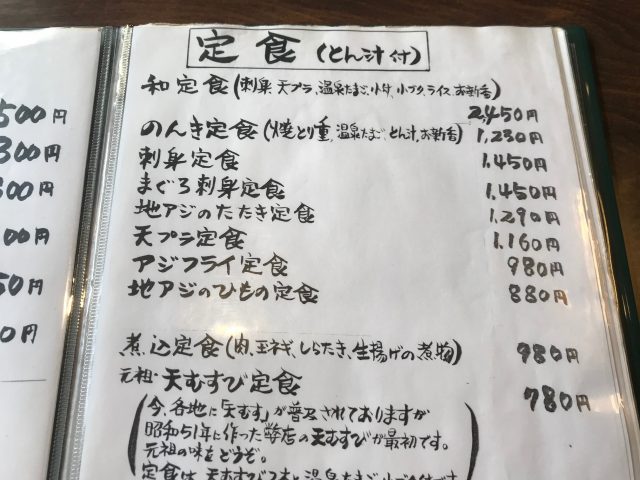 500円
300円
300円
00円
50円
0円
定食(とん汁付)
和定食(刺身、天プラ、温泉たまご、小付、小ブタ、ライス、お新香) 2,450円
のんき定食(焼とり重、温泉たまご、とん汁、お新香) 1,230円
刺身定食 1,450円
まぐろ刺身定食 1,450円
地アジのたたき定食 1,290円
天プラ定食 1,160円
アジフライ定食 980円
地アジのひもの定食 880円
煮込定食(肉、玉ネギ、しらたき、生揚げの煮物) 980円
元祖・天むすび定食 780円
今、各地に「天むす」が普及されておりますが
昭和51年に作った弊店の天むすびが最初です。
元祖の味をどうぞ。
定食は天むすび2本と温泉たまご